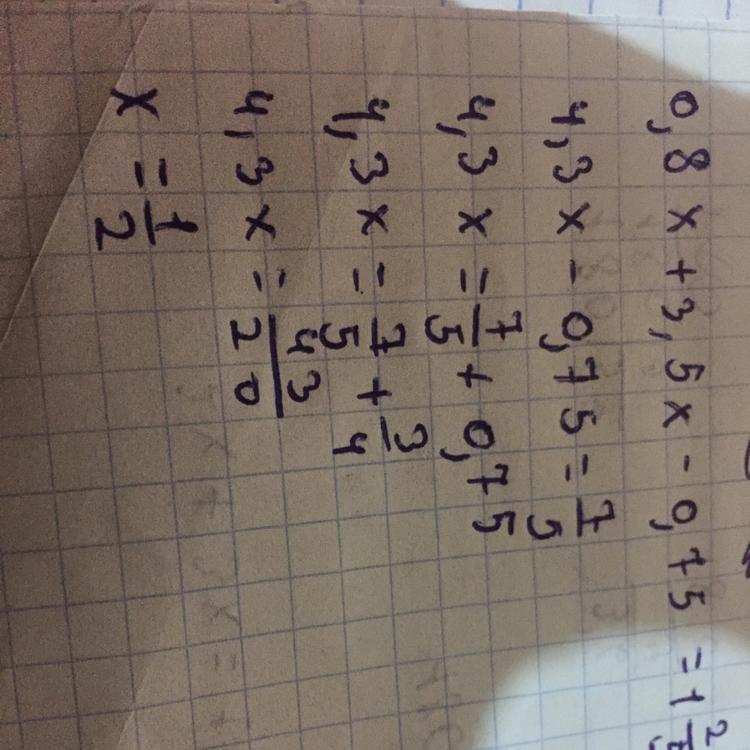 0,8x + 3,5x - 0,75 = 1 2/5
4,3x - 0,75 = 7/5
4,3x = 7/5 + 0,75
4,3x = 7/5 + 3/4
4,3x = 43/20
x = 1/2